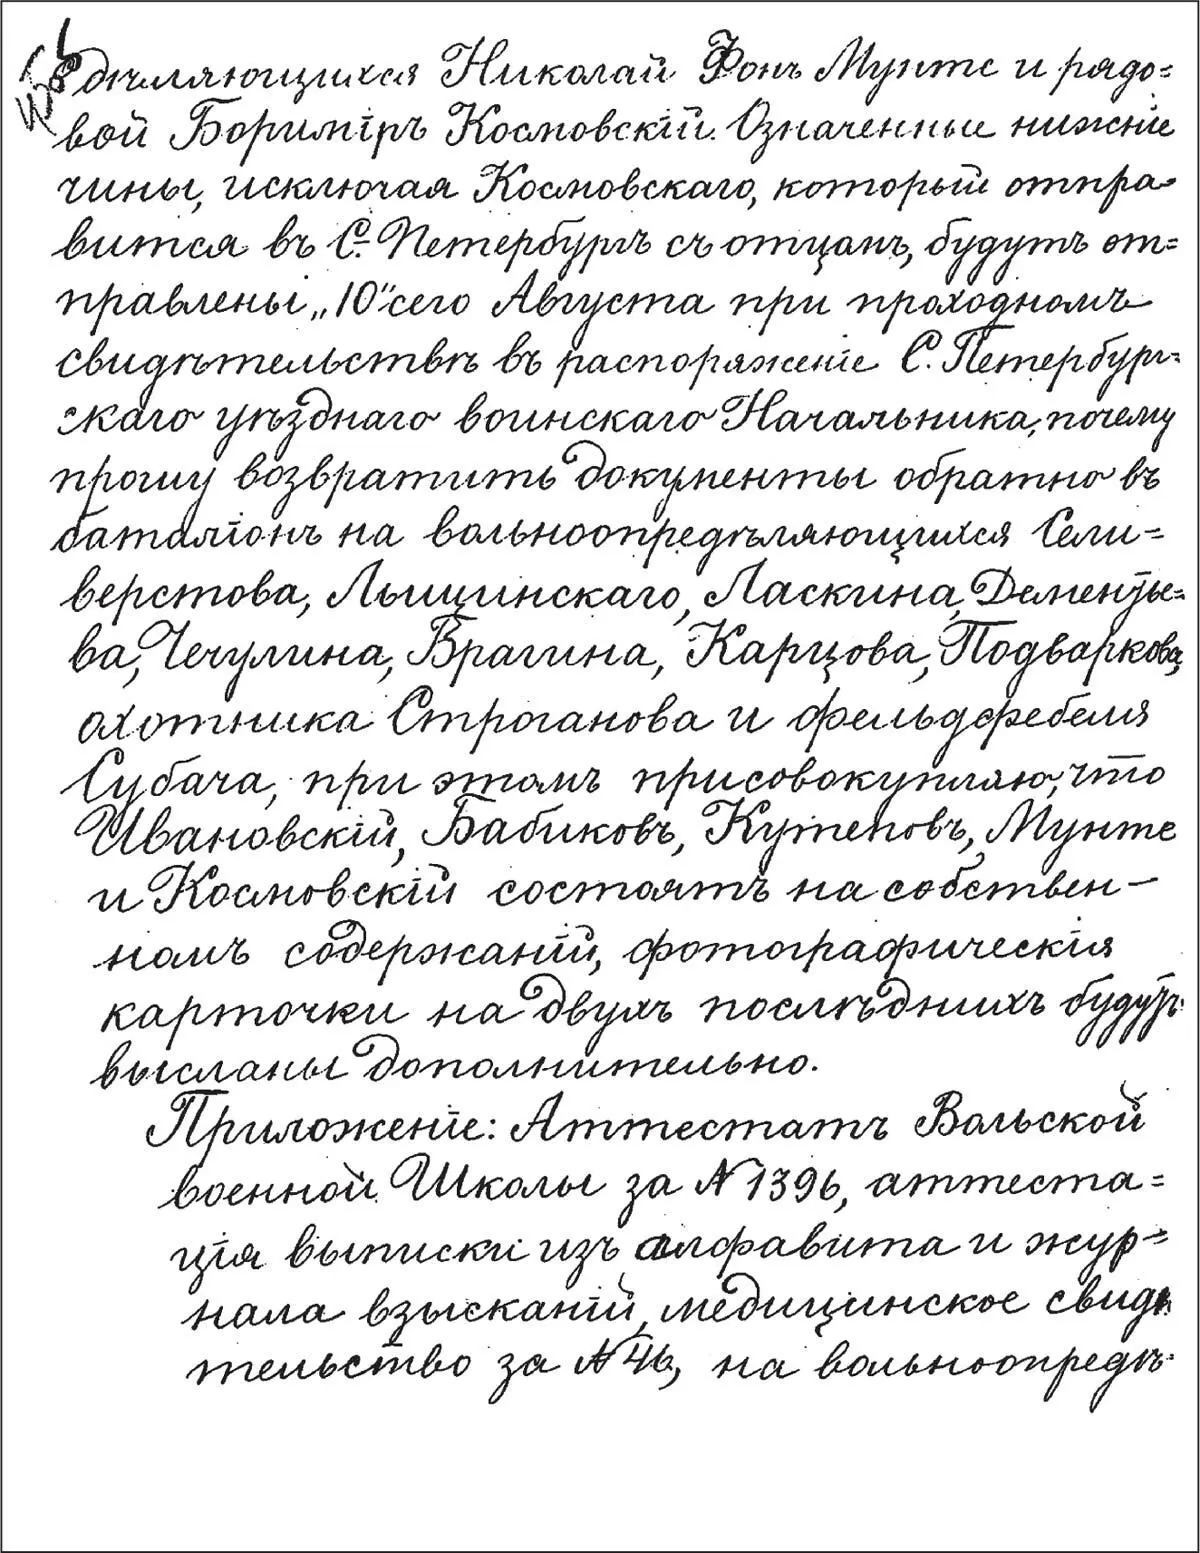 дѣляющихся Николай Фонъ Мунте и рядо=
вой Боримiръ Космовскiй. Означенные нижнiе
чины, исключая Космовскаго, который отпра=
вится въ С.-Петербургъ съ отцомъ, будутъ от=
правлены „10" сего Августа при проходномъ
свидѣтельствѣ въ распоряженiе С. Петербург=
скаго уѣзднаго воинскаго Начальника, почему
прошу возвратить документы обратно въ
баталiонъ на вольноопредѣляющихся Сели=
верстова, Лыщинскаго, Ласкина, Дементье=
ва, Чечулина, Врагина, Карцова, Подваркова,
охотника Строганова и фельдфебеля
Субача, при этомъ присовокупляю, что
Ивановскiй, Бабиковъ, Кутеповъ, Мунте
и Космовскiй состоятъ на собствен-
номъ содержанiй, фотографическiя
карточки на двухъ послѣднихъ будутъ
высланы дополнительно.
Приложенiе: Аттестатъ Вольской
военной Школы за № 1396, аттеста=
цiя выписки изъ алфавита и жур=
нала взысканiй, медицинское свидѣ
тельство за № 46, на вольноопредѣ-